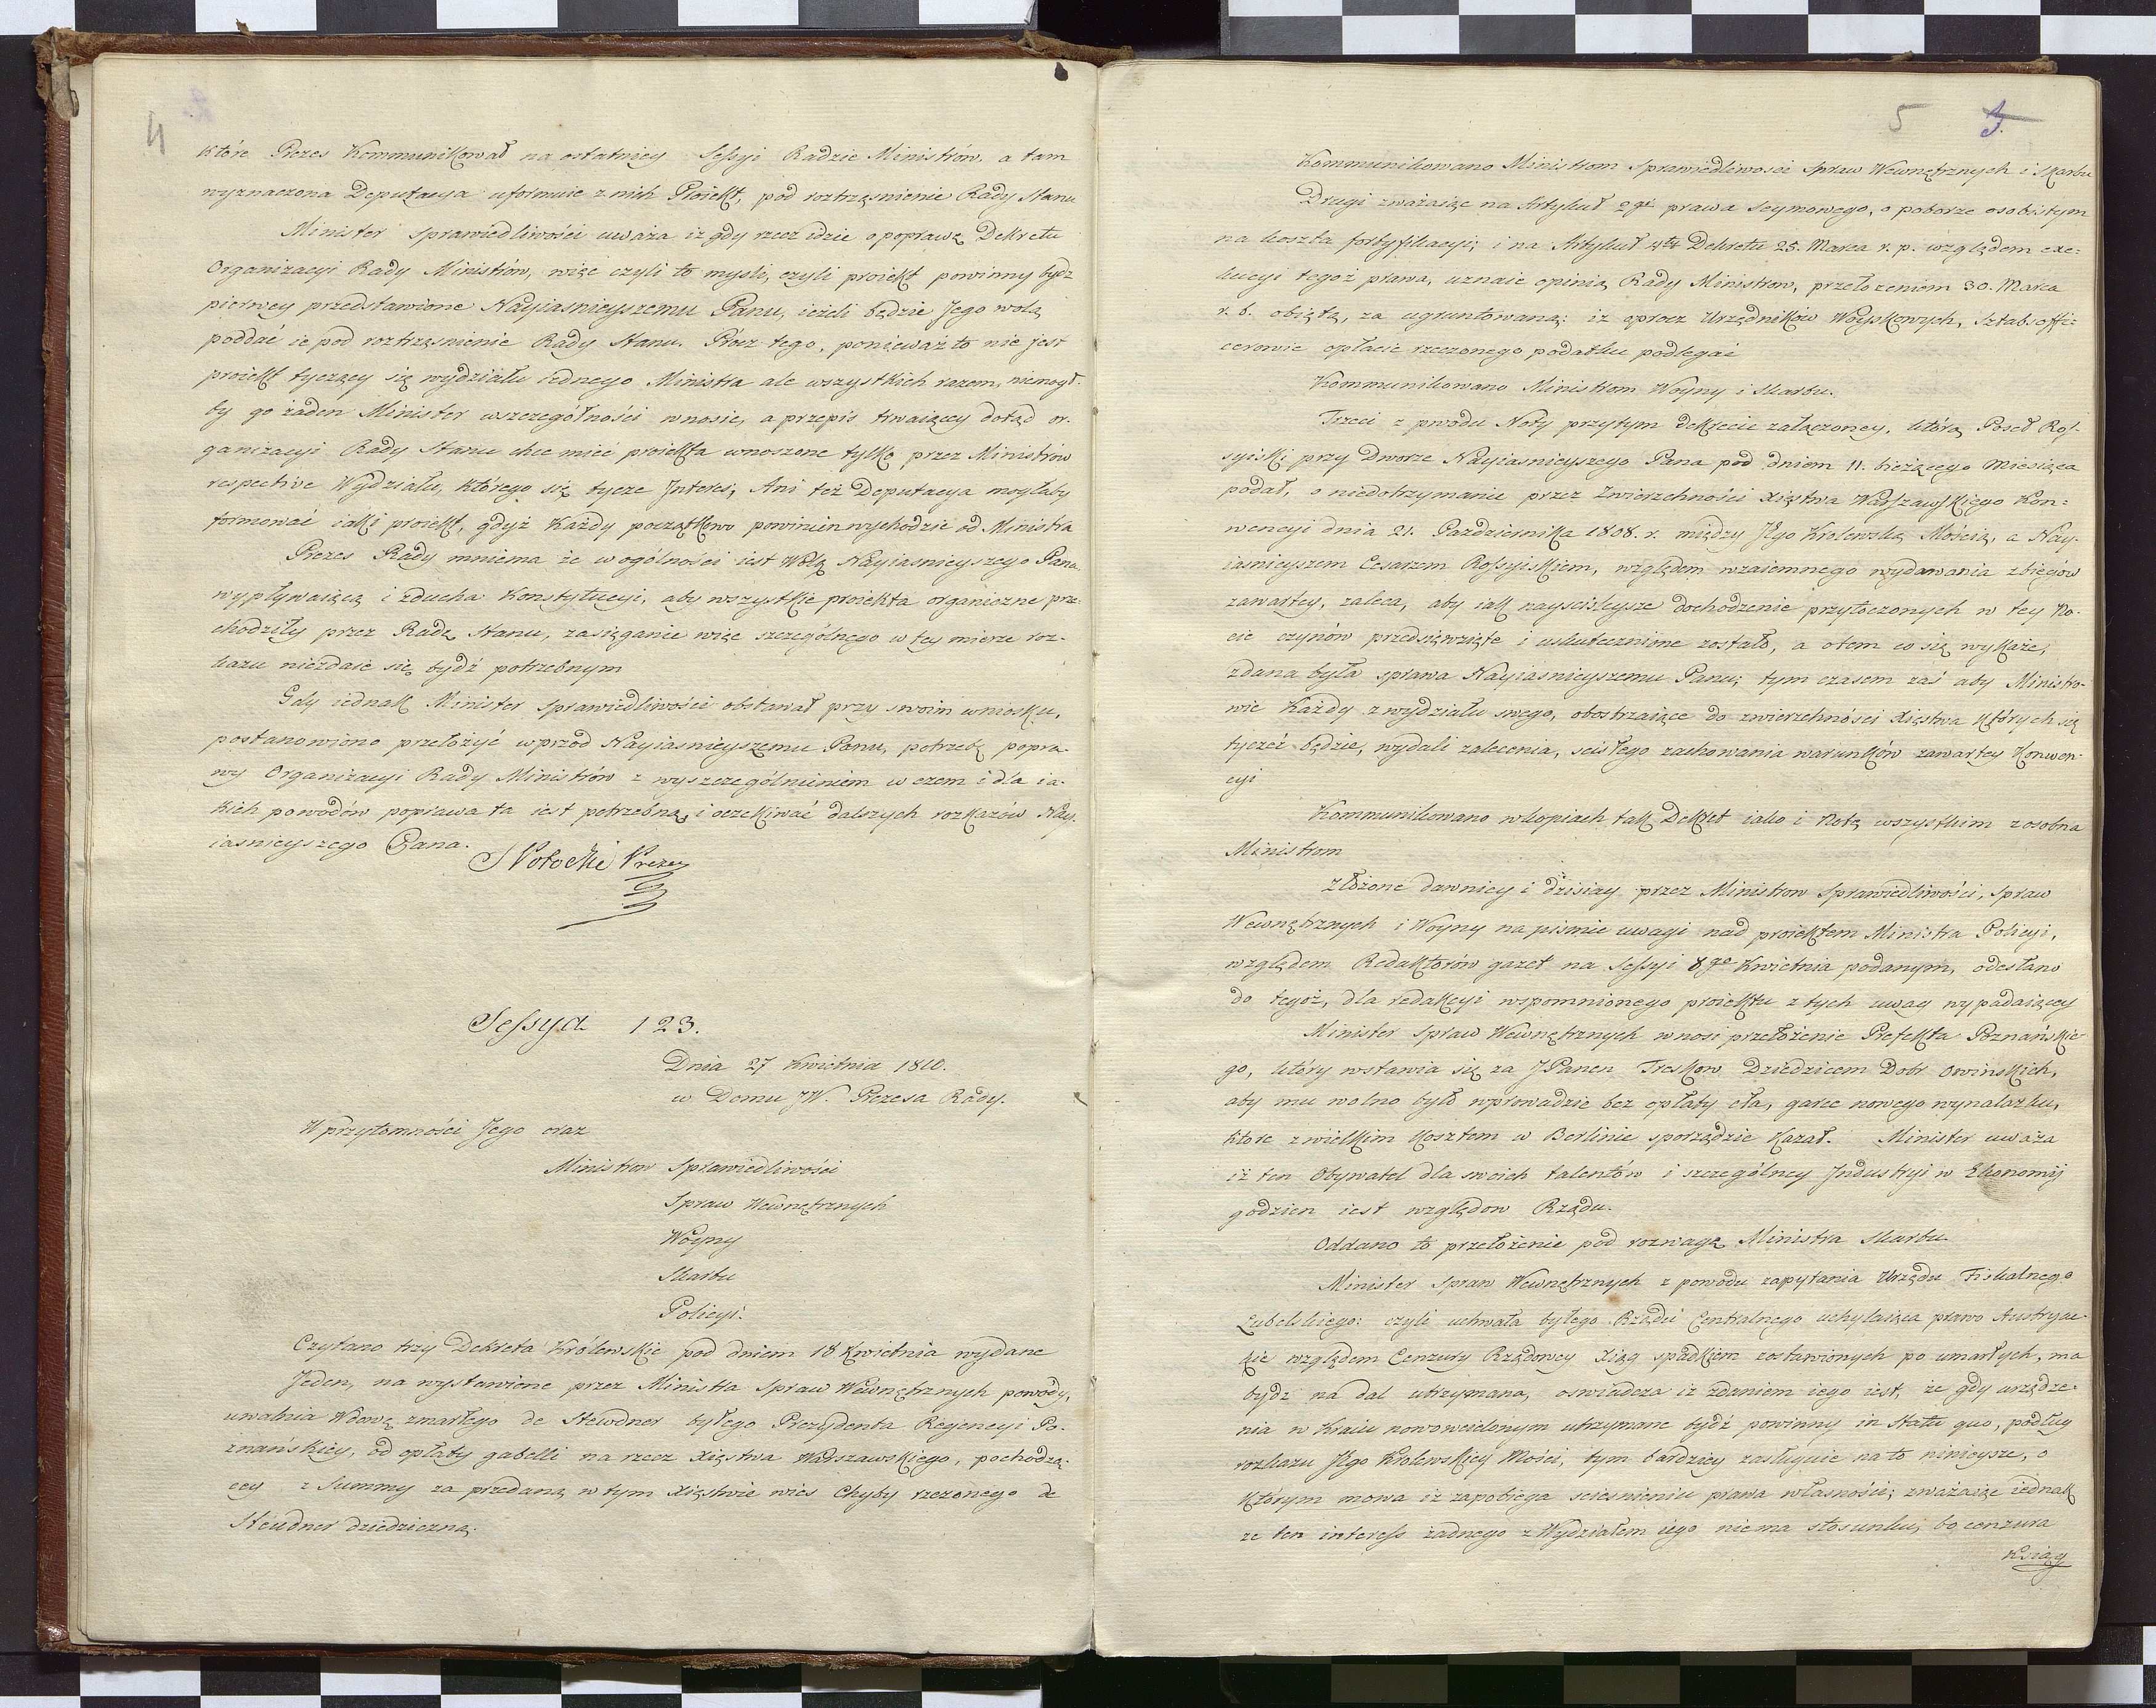 4
które Prezes Kommunikował na ostatniey Sessyi Radzie Ministrów, a tam
wyznaczona Deputacya uformuie z nich Proiekt, pod roztrząsnienie Rady Stanu
Minister Sprawiedliwości uważa iż gdy rzecz idzie o poprawę Dekretu
Organizacyi Rady Ministrów, więc czyli to mysli, czyli proiekt powinny bydz
pierwey przedstawione Nayiasnieyszemu Panu, ieżeli będzie Jego wolą
poddać ie pod roztrząsnienie Rady Stanu. Prócz tego, ponieważ to nie jest
proiekt tyczący się wydziału iednego Ministra ale wszystkich razem, niemogł-
by go żaden Minister wszczególności wnosić, a przepis trwaiący dotąd or-
ganizacyi Rady Stanu chce mieć proiekta wnoszone tylko przez Ministrów
respective Wydziału, którego się tycze Interes; Ani też Deputacya mogłaby
formować iaki proiekt, gdyż każdy początkowo powinien wychodzić od Ministra
Prezes Rady mniema że w ogólności iest Wolą Nayiasnieyszego Pana
wypływaiącą i zducha Konstytucyi, aby wszystkie proiekta organiczne prze-
chodziły przez Radę Stanu, zasięganie więc szczególnego w tey mierze roz-
kazu niezdaie się bydź potrzebnym
Gdy iednak Minister Sprawiedliwości obstawał przy swoim wniosku,
postanowiono przełożyć wprzod Nayiasnieyszemu Panu, potrzebę popra-
wy Organizacyi Rady Ministrów z wyszczególnieniem w czem i dla ia-
kich powodów poprawa ta iest potrzebną, i oczekiwać dalszych rozkazów Nay-
iasnieyszego Pana.
SPotocki Prezes
Sessya 123.
Dnia 27 Kwietnia 1810.
w Domu JW. Prezesa Rady.
W przytomności Jego oraz
Ministrow Sprawiedliwości
Spraw Wewnętrznych
Woyny
Skarbu
Policyi.
Czytano trzy Dekreta Królewskie pod dniem 18 Kwietnia wydane
Jeden, na wystawione przez Ministra Spraw Wewnętrznych powody,
uwalnia Wdowę zmarłego de Steudner byłego Prezydenta Regencyi Po-
znańskiey, od opłaty gabelli na rzecz Xięstwa Warszawskiego, pochodzą-
cey z Summy za przedaną w tym Xięstwie wies Chyby rzezonego de
Steudner dziedziczną.
5 3.
Kommunikowano Ministrom Sprawiedliwości Spraw Wewnętrznych i Skarbu
Drugi zważaiąc na Artykuł 2gi prawa Seymowego, o poborze osobistym
na koszta fortyfikacyi; i na Artykuł 4ty Dekretu 25. Marca r. p. względem exe-
kucyi tegoż prawa, uznaie opinią Rady Ministrow, przełożeniem 30. Marca
r. b. obiętą, za ugruntowaną: iż oprocz Urzędników Woyskowych, Sztabsoffi-
cerowie opłacie rzeczonego podatku podlegać
Kommunikowano Ministrom Woyny i Skarbu.
Trzeci z pwodu Noty przytym dekrecie załączoney, którą Poseł Ros-
syiski przy Dworze Nayiasnieyszego Pana pod dniem 11. bieżącego Miesiąca
podał, o niedotrzymanie przez Zwierzchności Xięstwa Warszawskiego Kon-
wencyi dnia 21. Pazdziernika 1808. r. między JEgo Krolewską Mością, a Nay-
iasnieyszem Cesarzem Rossyiskiem, względem wzaiemnego wydawania zbiegów
zawartey, zaleca, aby iak nayscisleysze dochodzenie przytoczonych w tey No-
cie czynów przedsięwzięte i uskutecznione zostało, a otem co się wykaże,
zdana była sprawa Nayiasnieyszemu Panu; tym czasem zaś aby Ministro-
wie każdy z wydziału swego, obostrzaiące do zwierzchności Xięstwa których się
tyczeć będzie, wydali zalecenia, scisłego zachowania warunków zawartey Konwen-
cyi
Kommunikowano wkopiach tak Dekret iako i Notę wszystkim zosobna
Ministrom
Złożone dawniey i dzisiay przez Ministrow Sprawiedliwości, Spraw
Wewnętrznych i Woyny na piśmie uwagi nad proiektem Ministra Policyi,
względem Redaktorów gazet na Sessyi 8go Kwietnia podanym, odesłano
do tegoż, dla redakcyi wspomnionego proiektu z tych uwag wypadaiącey
Minister Spraw Wewnętrznych wnosi przełożenie Prefekta Poznańskie-
go, który wstawia się za JPanen Treskow Dziedzicem Dobr Owińskich,
aby mu wolno było wprowadzić bez opłaty cła, garce nowego wynalazku,
ktore z wielkim kosztem w Berlinie sporządzić kazał. Minister uważa
iż ten Obywatel dla swoich talentów i szczególney Industryi w Ekonomij
godzien iest względow Rządu.
Oddano to przełożenie pod rozwagę Ministra Skarbu.
Minister Spraw Wewnętrznych z powodu zapytania Urzędu Fiskalnego
Lubelskiego: czyli uchwała byłego Rządu Centralnego uchylaiąca prawo Austryac-
kie względem Cenzury Rządowey Xiąg spadkiem zostawionych po umarłych, ma
bydz na dal utrzymana, oswiadcza iż zdaniem iego iest, że gdy urządze-
nia w Kraiu nowowcielonym utrzymane bydź powinny in Statu quo, podług
rozkazu JEgo Krolewskiey Mości, tym bardziey zasługuie na to ninieysze, o
którym mowa iż zapobiega sciesnieniu prawa własności; zważaiąc iednak
ze ten interess żadnego z Wydziałem iego niema stosunku, bo cenzura
Ksiąg